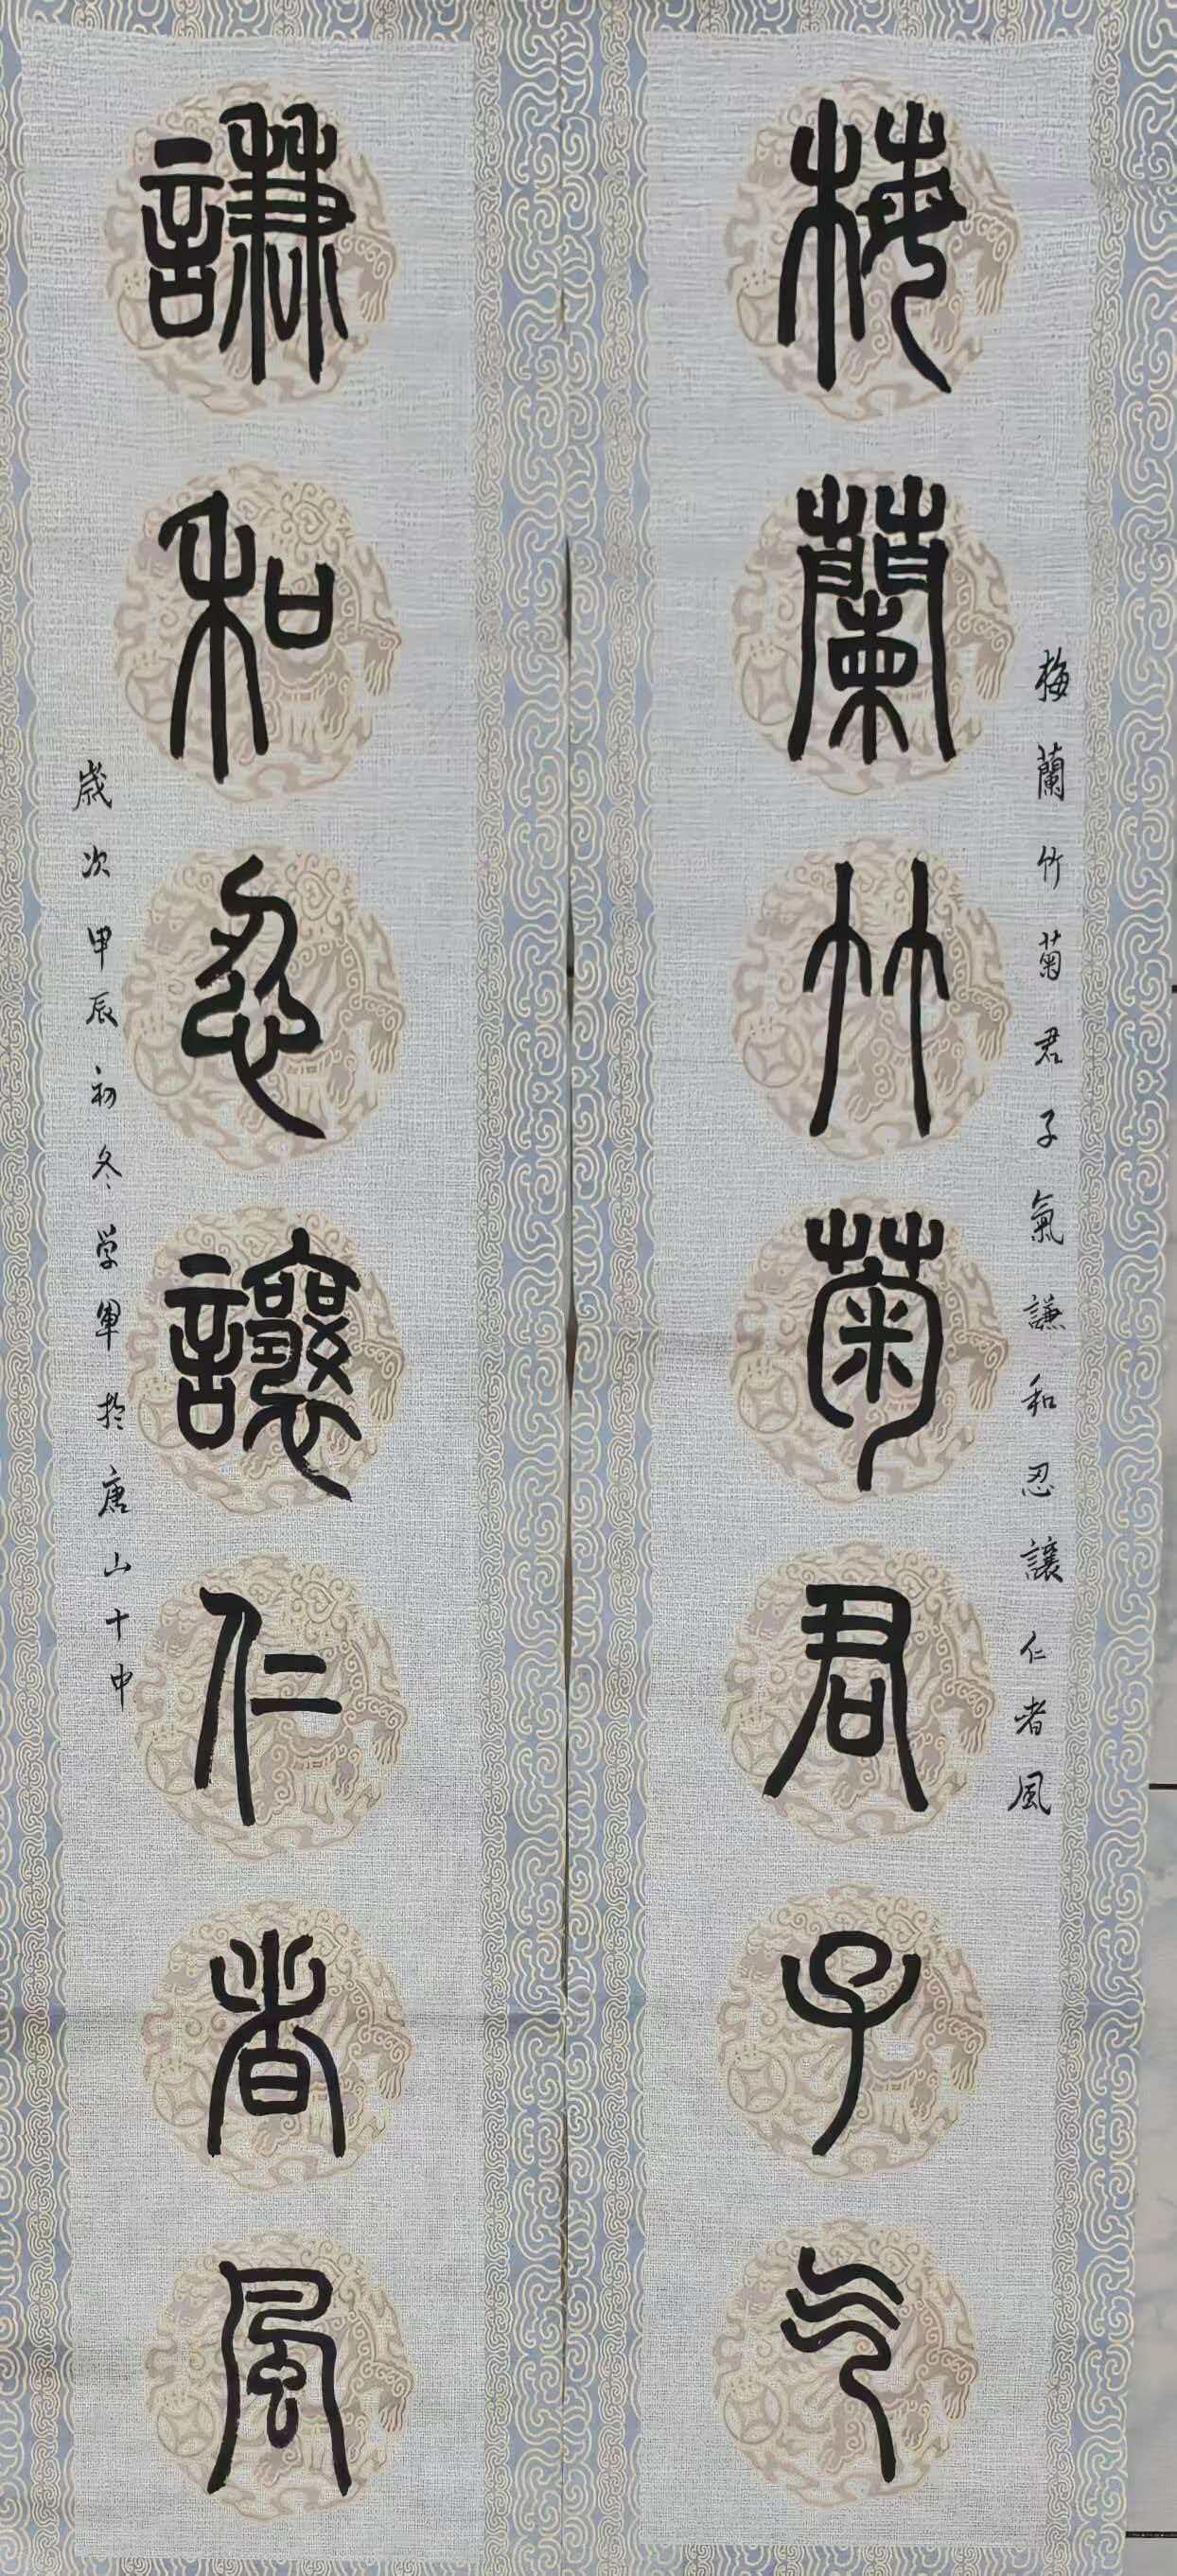 梅蘭竹菊君子气
梅蘭竹菊君子氣謙和忍讓仁者風
謙和忍讓仁者風
歲次甲辰初冬学軍於唐山十中